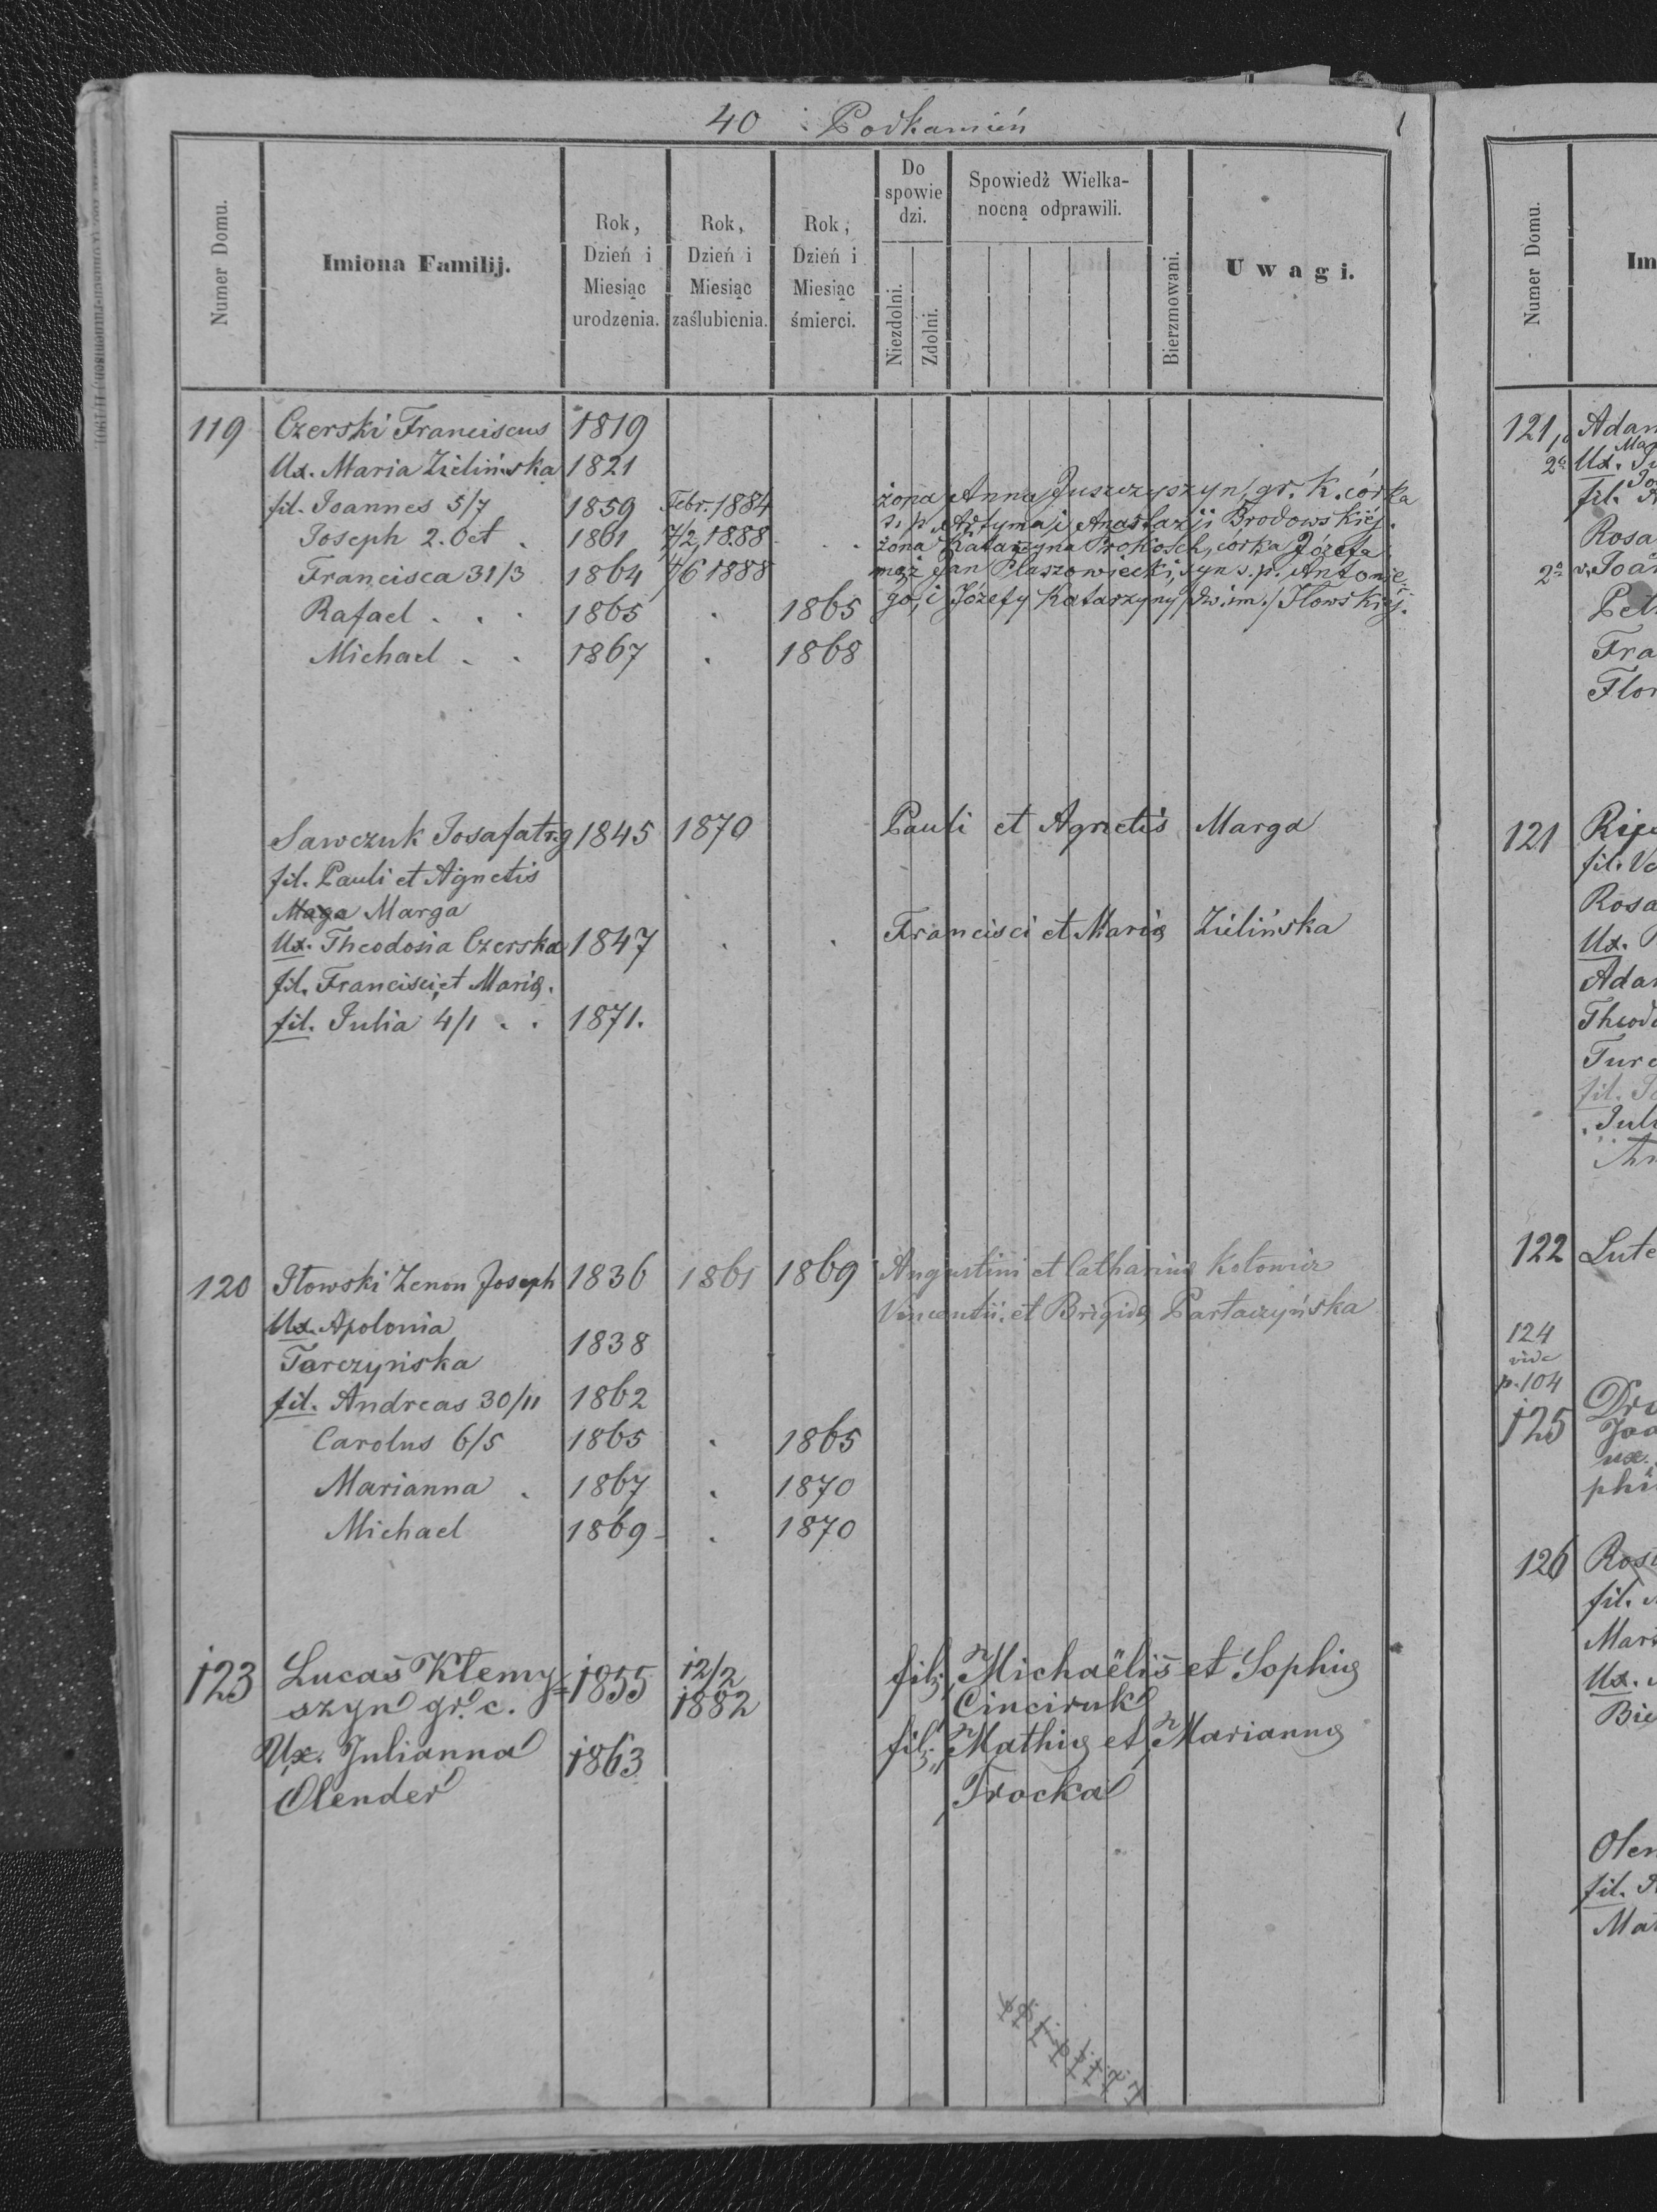 40 Podkamień
Numer Domu.
Imiona Familij.
Rok, Dzień i Miesiąc urodzenia.
Rok, Dzień i Miesiąc zaślubienia.
Rok, Dzień i Miesiąc śmierci.
Do spowie dzi.
Niezdolni.
Zdolni.
Spowiedź Wielka-
nocną odprawili.
Bierzmowani.
Uwagi.
119 Czerski Franciscus 1819
Ux. Maria Zielińska 1821
fil. Joannes 5/7 1859 Febr. 1884 żona Anna Juszczyszyn, gr. k. córka
ś. p. Artyma i Anastazji Brodowskiéj.
Joseph 2. Oct. 1861 7/2 1888 żona Katarzyna Prokosch, córka Józefa
Francisca 31/3 1864 4/6 1888 mąż Jan Płaszowiecki, syn ś. p. Antonie-
go, i Józefy Katarzyny /dw. im./ Iłowskiéj.
Rafael . . . 1865 . 1865
Michael . . 1867 . 1868
Sawczuk Josafat r.g 1845 1870 Pauli et Agnetis Marga
fil. Pauli et Agnetis
Maga Marga
Ux. Theodosia Czerska 1847 Francisci et Mariæ Zielińska
fil. Francisci et Mariæ.
fil. Julia 4/1 . . 1871.
120 Iłowski Zenon Joseph 1836 1861 1869 Augustini et Catharinæ Kotowicz
Ux. Apolonia Vincentii et Brigidæ Partaczyńska
Tarczyńska 1838
fil. Andreas 30/11 1862
Carolus 6/5 1865 . 1865
Marianna . 1867 . 1870
Michael 1869 . 1870
123 Lucas Klemy= 1855 12/2 1882 fil. Michaëlis et Sophiæ
szyn gr. c. Cinciruk
Ux. Julianna 1863 fil. Mathiæ et Mariannæ
Olender Trocka
Numer Domu.
Im
121
Adam
Ux.
fil.
Rosa
Fra
Flor
121
fil.
Rosa
Ux.
Adam
Theod
fil.
122 Lute
124
vide
p. 104
125
ux.
phi
126
fil.
Mar
Ux.
Bie
Olen
fil.
Mat